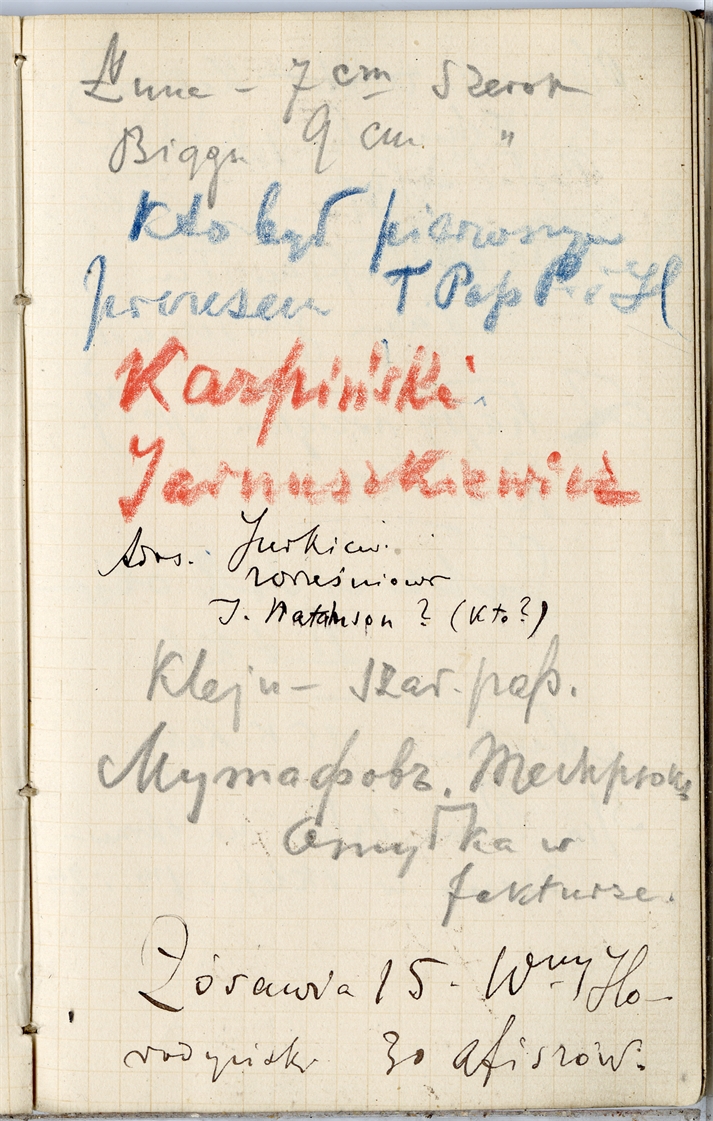 Łuna - 7 cm szerok
Biggu 9 cm "
Kto był pierwszym
prezesem T Pap P i Jl
Karpiński
Januszkiewicz
Adres. Jurkiew.
wrześniowe
J. Natanson ? (Kto?)
Kleju - szar. pap.
Мутафовъ.
Omyłka w
fakturze.
Żórawia 15. Wny Ho-
rodyński 30 afiszów.